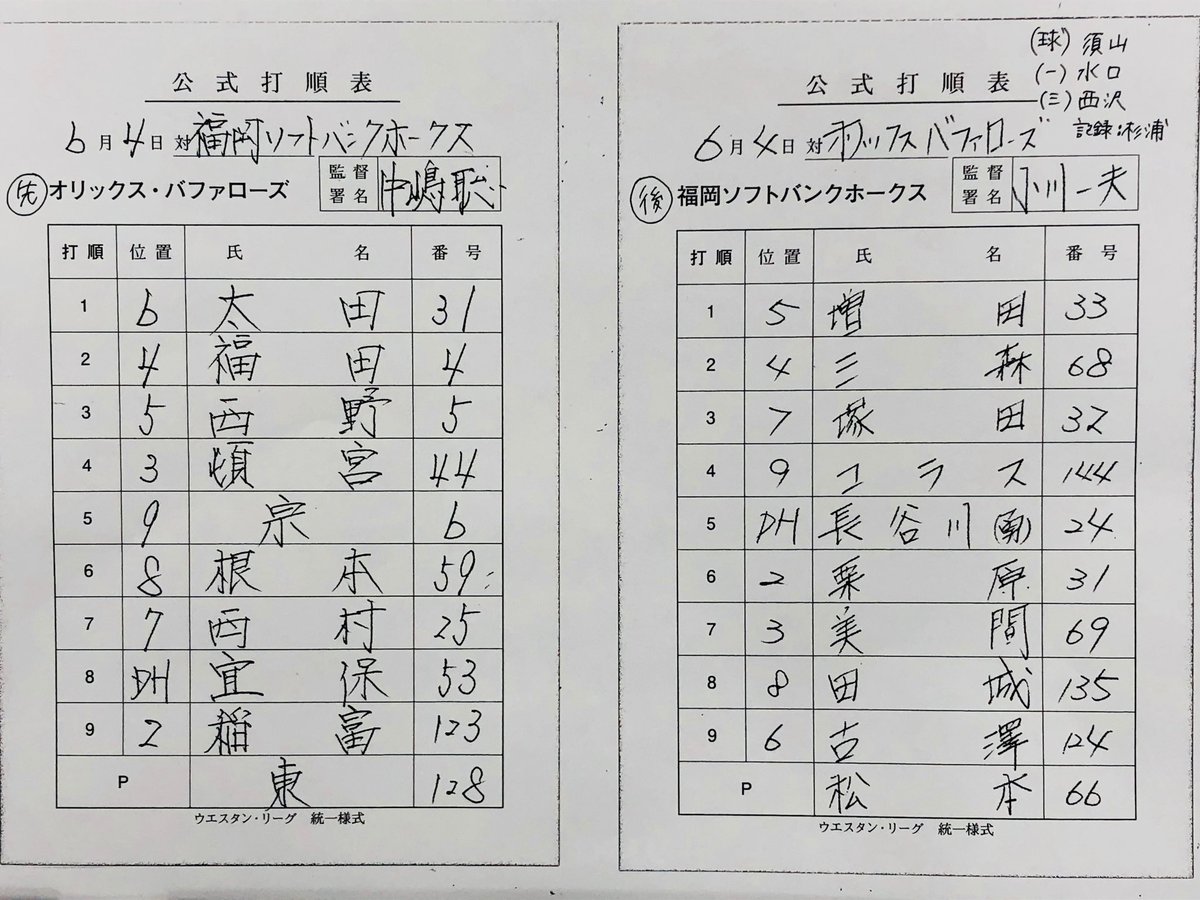 公式打順表
6月4日対福岡ソフトバンクホークス
先 オリックス・バファローズ 監督署名 中嶋聡
打順 位置 氏名 番号
1 6 太田 31
2 4 福田 4
3 5 西野 5
4 3 頓宮 44
5 9 宗 6
6 8 根本 59
7 7 西村 25
8 DH 宜保 53
9 2 稲富 123
P 東 128
ウエスタン・リーグ 統一様式
(球) 須山
(一) 水口
(三) 西沢
記録:杉浦
公式打順表
6月4日対オリックスバファローズ
後 福岡ソフトバンクホークス 監督署名 小川一夫
打順 位置 氏名 番号
1 5 増田 33
2 4 三森 68
3 7 塚田 32
4 9 コラス 144
5 DH 長谷川(勇) 24
6 2 栗原 31
7 3 美間 69
8 8 田城 135
9 6 古澤 124
P 松本 66
ウエスタン・リーグ 統一様式